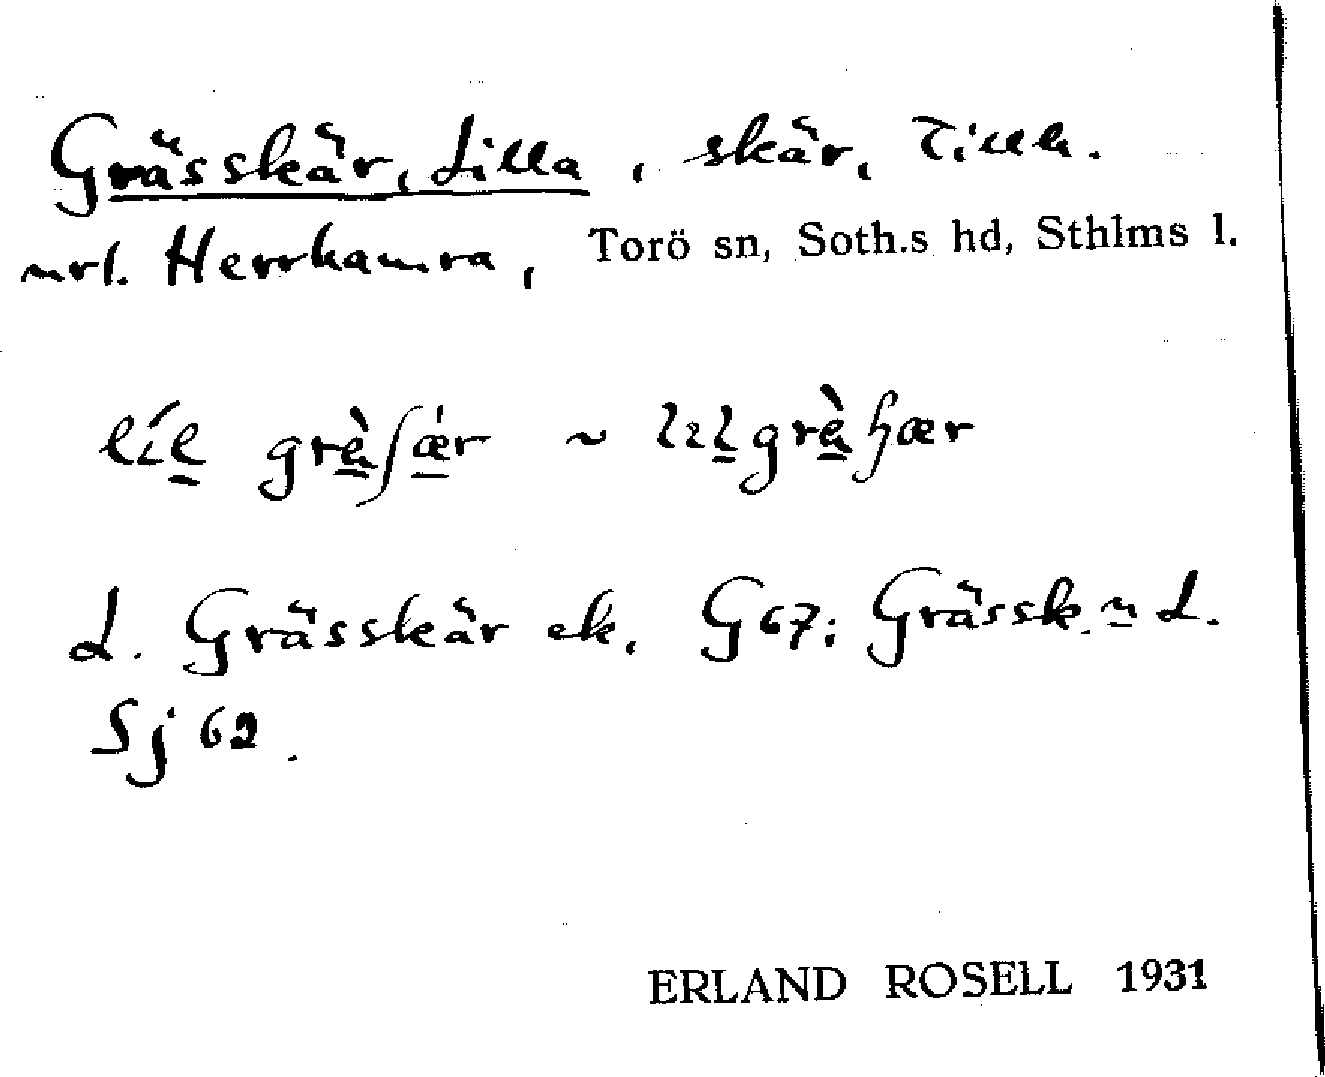 Grässkär, Lilla, skär, Tillh.
mrl. Herrhamra, Torö sn, Soth.s hd, Sthlms l.
líl grὲʃǽr ~ lɩlgrὲʃær
L. Grässkär ek. G67: Grässk. L.
Sj 62.
ERLAND ROSELL 1931